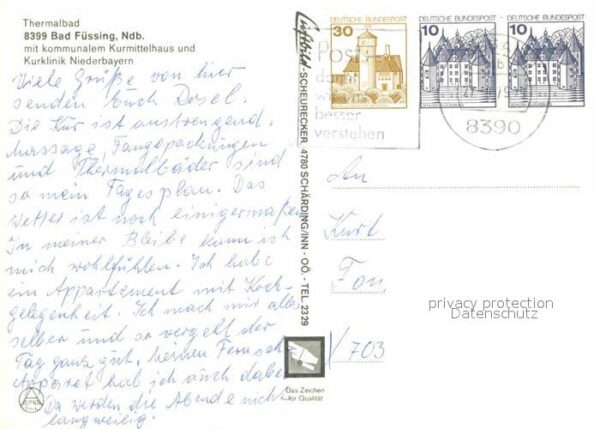 Thermalbad
8399 Bad Füssing, Ndb.
mit kommunalem Kurmittelhaus und
Kurklinik Niederbayern
Viele Grüße von hier
senden Euch
Die Kur ist anstrengend,
Massage, Fangopackungen
und Thermalbäder sind
so mein Tagesplan. Das
Wetter ist noch einigermaßen
In meiner Bleibe kann ich
mich wohlfühlen. Ich habe
ein Appartement mit Koch-
gelegenheit. Ich mach mir alles
selber und so vergeht der
Tag ganz gut, meinen Fernseh-
Apparat hab ich auch dabei
Da werden die Abende nicht
langweilig.
Luftbild-SCHEURECKER, 4780 SCHÄRDING/INN - OÖ. - TEL. 2329
Das Zeichen
für Qualität
DEUTSCHE BUNDESPOST
30
DEUTSCHE BUNDESPOST
10
DEUTSCHE BUNDESPOST
10
besser
verstehen
8390
An
Kurt
Fon
703
privacy protection
Datenschutz